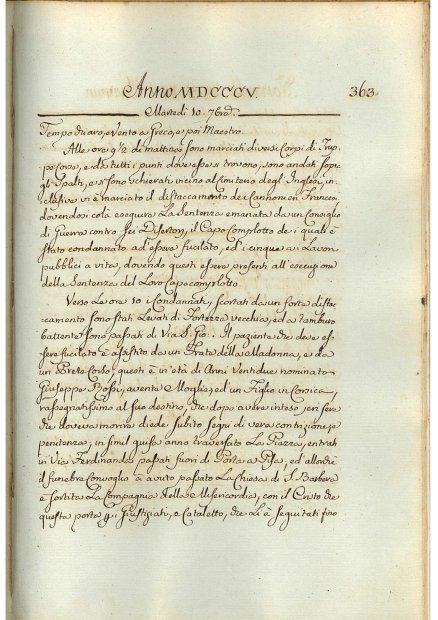 Anno MDCCCV. 363
Martedi 10. 7bre.
Tempo chiaro, e Vento a Greco, e poi Maestro.
Alle ore 9½ di mattina sono marciati diversi Corpi di Trup-
pe Corse, e da tutti i punti dove esse si trovono, sono andati sopra
gli Spalti, e si sono schierati vicino al Cimiterio degl' Inglesi, in-
clusive vi è marciato il distaccamento dei Cannonieri Francesi
dovendosi colà eseguire La Sentenza emanata da un Consiglio
di Guerra contro sei Disertori, il Capo Complotto de i quali è
stato condannato ad essere fucilato, ed i cinque a i Lavori
pubblici a vita, dovendo questi essere presenti all' esecuzione
della Sentenza del Loro Capo complotto.
Verso Le ore 10 i Condannati, scortati da un forte dista-
camento sono stati Levati di Fortezza vecchia, ed a tamburo
battente sono passati di Via S. Gio: Il paziente che deve es-
sere fucilato è assistito da un Frate della Madonna, e da
un Prete Corso, questi è in età di Anni Ventidue nominato
Giuseppe Bossi, aventa Moglie, ed un Figlio in Corsica,
rassegnatissimo al suo destino, che dopo avere inteso jeri sera
che doveva morire diede subito segni di vera contrizione, e
penitenza; in simil guisa anno traversato La Piazza, entrati
in Via Ferdinanda passati fuori di Porta a Pisa, ed allorchè
il funebre Convoglio à avuto passato La Chiesa di S. Barbera
è sortita La Compagnia della Misericordia, con il Cristo che
questa porta pi Giustiziati, e Cataletto, che Li à seguitati fino